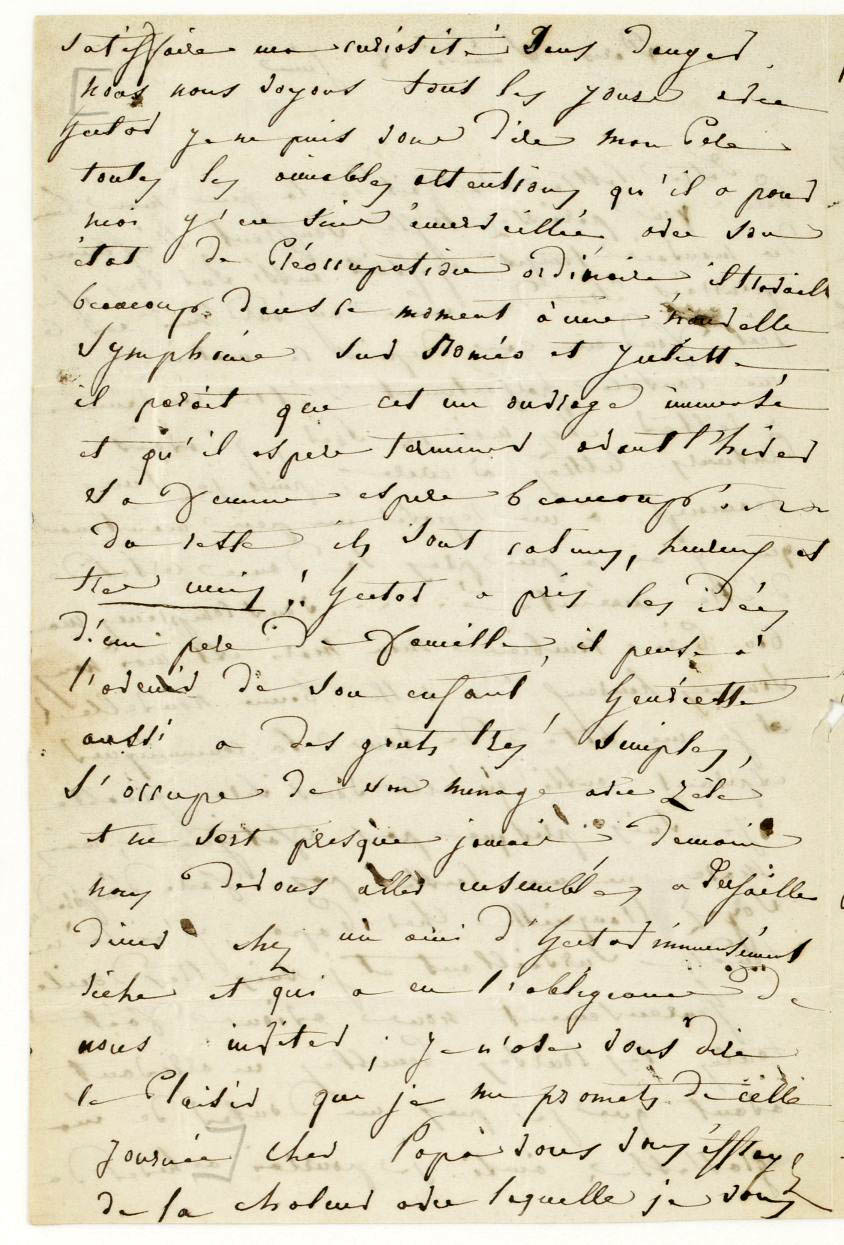 satisfaire ma curiosité sans danger
nous nous voyons tous les jours avec
hector je ne puis vous dire mon Pere
toutes les aimables attentions qu'il a pour
moi j'en suis émerveillée avec son
état de Préoccupation ordinaire, il travaille
beaucoup dans ce moment à une nouvelle
Symphonie sur Roméo et Juliette
il paroit que cet un ouvrage immense
et qu'il espere terminer avant l'hiver
sa femme espere beaucoup
du reste ils sont calmes, heureux et
tres unis ! hector a pris les idées
d'un pere de famille, il pense a
l'avenir de son enfant, henriette
aussi a des gouts tres simples,
s'occupe de son ménage avec zèle
et ne sort presque jamais, demain
nous devons aller ensembles a Versailles
diner chez un ami d'hector immensément
riche et qui a eu l'obligeance de
nous inviter ; je n'ose vous dire
le Plaisir que je me promets de cette
journée cher Papa vous vous effrayez
de la chaleur avec laquelle je vous